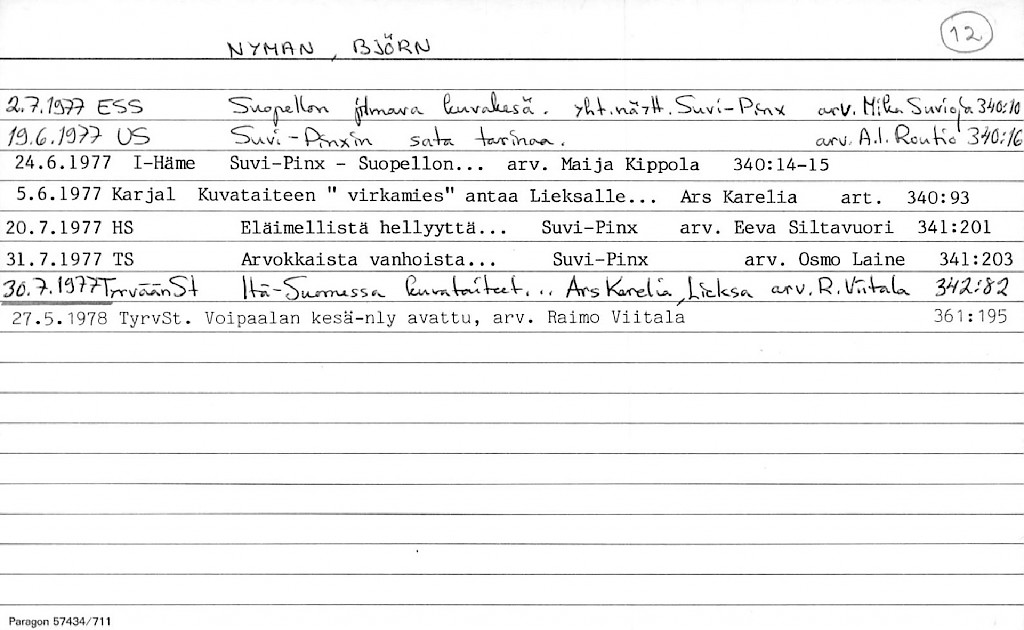 12
NYMAN, BJÖRN
2.7.1977 ESS Suopellon jítmava kuvakesä. yht.näytt. Suvi-Pinx arv. Mika Suvioja 340:10
19.6.1977 US Suvi-Pinxin sata tarinaa. arv. A.I. Routio 340:16
24.6.1977 I-Häme Suvi-Pinx - Suopellon... arv. Maija Kippola 340:14-15
5.6.1977 Karjal Kuvataiteen " virkamies" antaa Lieksalle... Ars Karelia art. 340:93
20.7.1977 HS Eläimellistä hellyyttä... Suvi-Pinx arv. Eeva Siltavuori 341:201
31.7.1977 TS Arvokkaista vanhoista... Suvi-Pinx arv. Osmo Laine 341:203
30.7.1977 TyrväänSt Itä-Suomessa kuvataiteet... Ars Karelia, Lieksa arv. R. Viitala 342:82
27.5.1978 TyrvSt. Voipaalan kesä-nly avattu, arv. Raimo Viitala 361:195
Paragon 57434/711